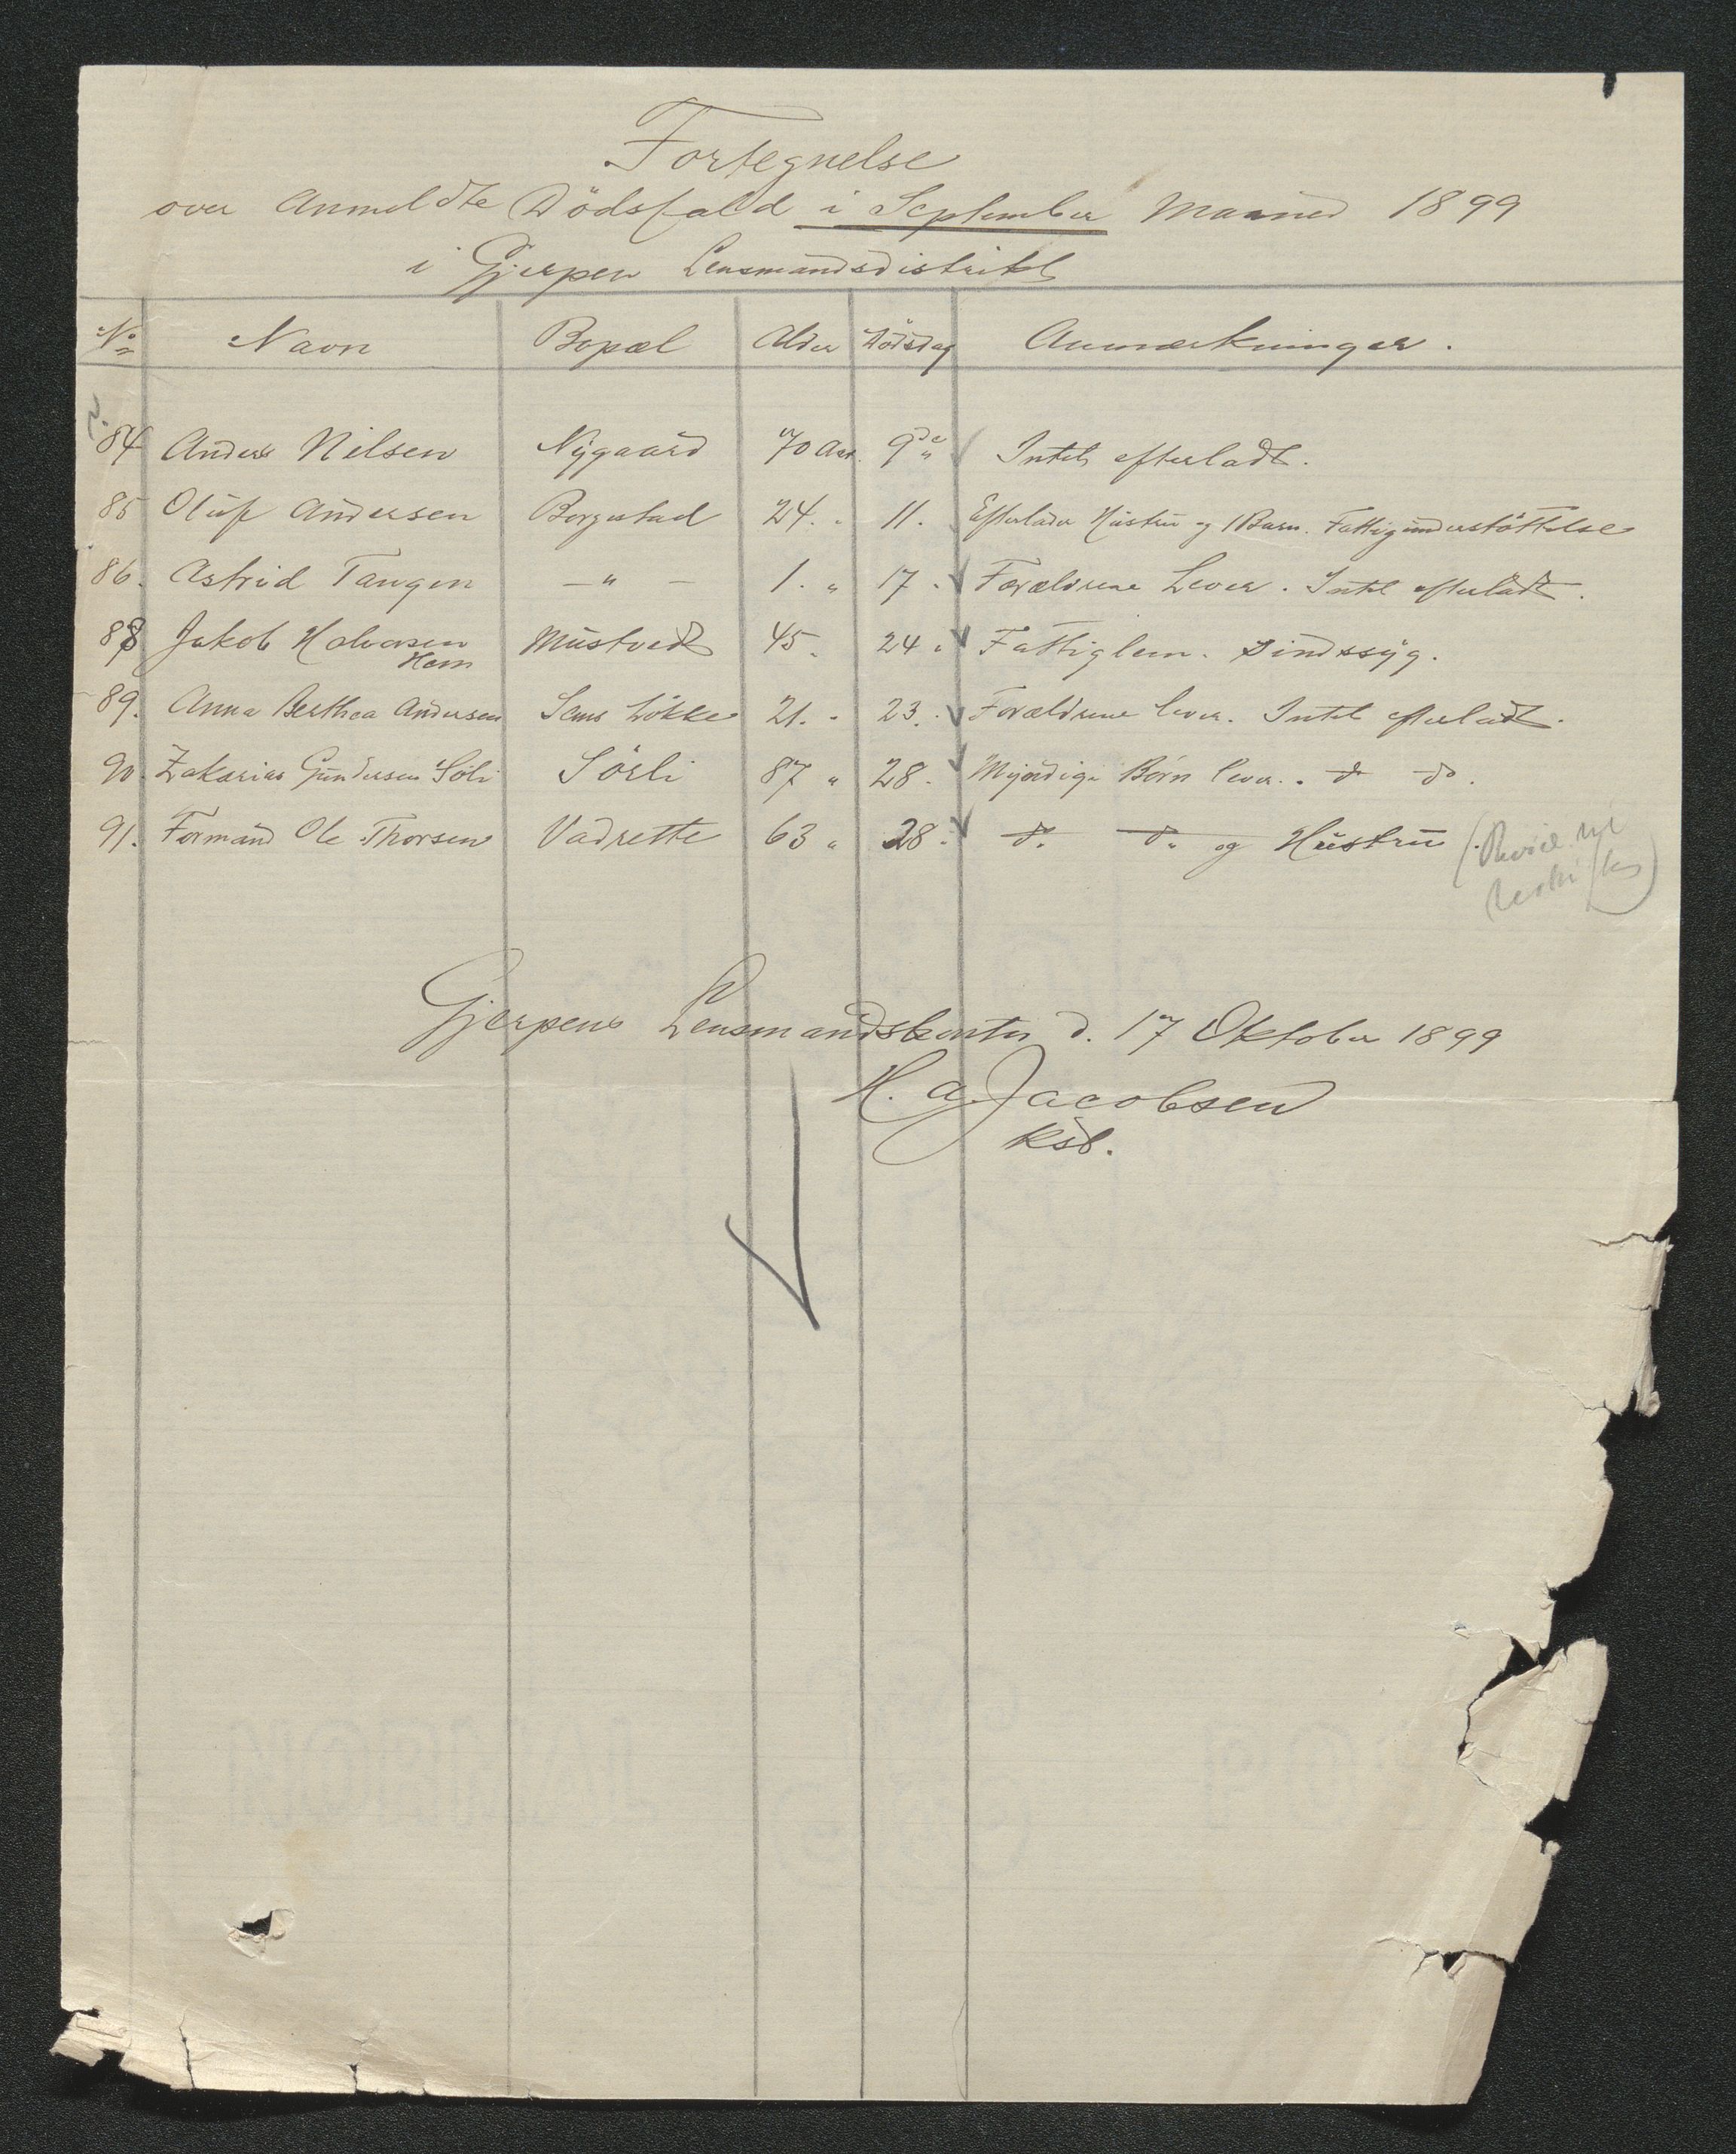 Fortegnelse
over Anmeldte Dödsfald i September Maaned 1899
i Gjerpen Lensmandsdistrikt
No Navn Bopæl Alder Dödsdag Anmærkninger.
84 Anders Nilsen Nygaard 70 Aar. 9de Intet efterladt.
85 Oluf Andersen Borgestad 24. " 11. Efterlader Hustru og 1 Barn. Fattigunderstöttelse
86. Astrid Tangen — " — 1. " 17. Forældrene Lever. Intet efterladt.
88 Jakob Halvorsen Mustvedt 45. 24. Fattiglem. Sindssyg.
Hem
89. Anna Berthea Andersen Sems Lökke 21. " 23. Forældrene lever. Intet efterladt.
90. Zakarias Gundersen Söli Sörli 87 " 28. Myndige Börn lever. do do.
91. Formand Ole Thorsen Vadrette 63 " 28. do. do. og Hustru.
Gjerpens Lensmandskontor d. 17 Oktober 1899
H. A. Jacobsen
Kst.